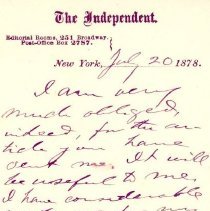 The Independent.
Editorial Rooms, 251 Broadway.
Post-Office Box 2787.
New York, July 20 1878.
I am very
much obliged,
indeed, for the ar-
ticle you have
sent me. It will
be useful to me.
I have considerable